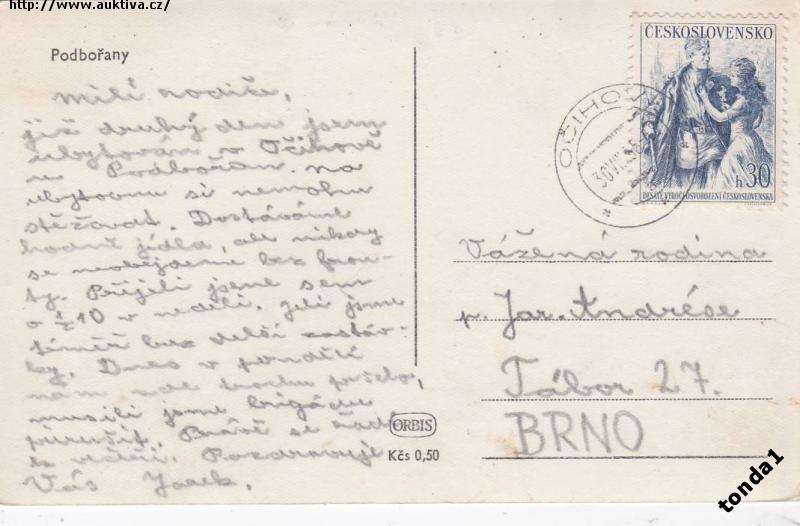 http://www.auktiva.cz/
Podbořany
Milí rodiče,
již druhý den jsem
ubytován v Očihově
u Podbořan. Na
ubytovnu si nemohu
stěžovat. Dostáváme
hodně jídla, ale nikdy
se neobejdeme bez fron-
ty. Přijeli jsme sem
o ½10 v neděli. Jeli jsme
téměř bez delší zastáv-
ky. Dnes v pondělí
nám zde trochu pršelo,
musili jsme brigádu
přerušit. Právě se
Pozdravuje
Vás Jarek.
ORBIS
Kčs 0,50
ČESKOSLOVENSKO
h30
DESÁTÉ VÝROČÍ OSVOBOZENÍ ČESKOSLOVENSKA
OČIHOV
30 VII
Vážená rodina
p. Jar. Andrése
Tábor 27.
BRNO
tonda1